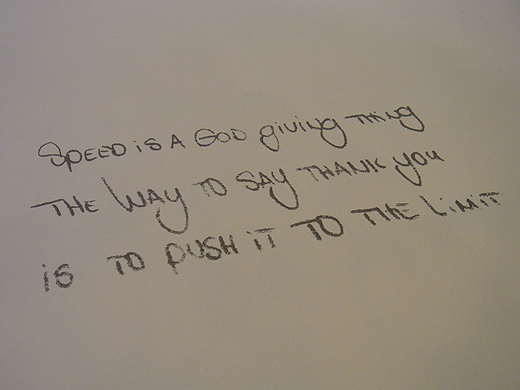 SPEED iS A GOD giving THing
THE WAY TO SAY THANK you
iS TO PUSH iT TO THE LiMiT